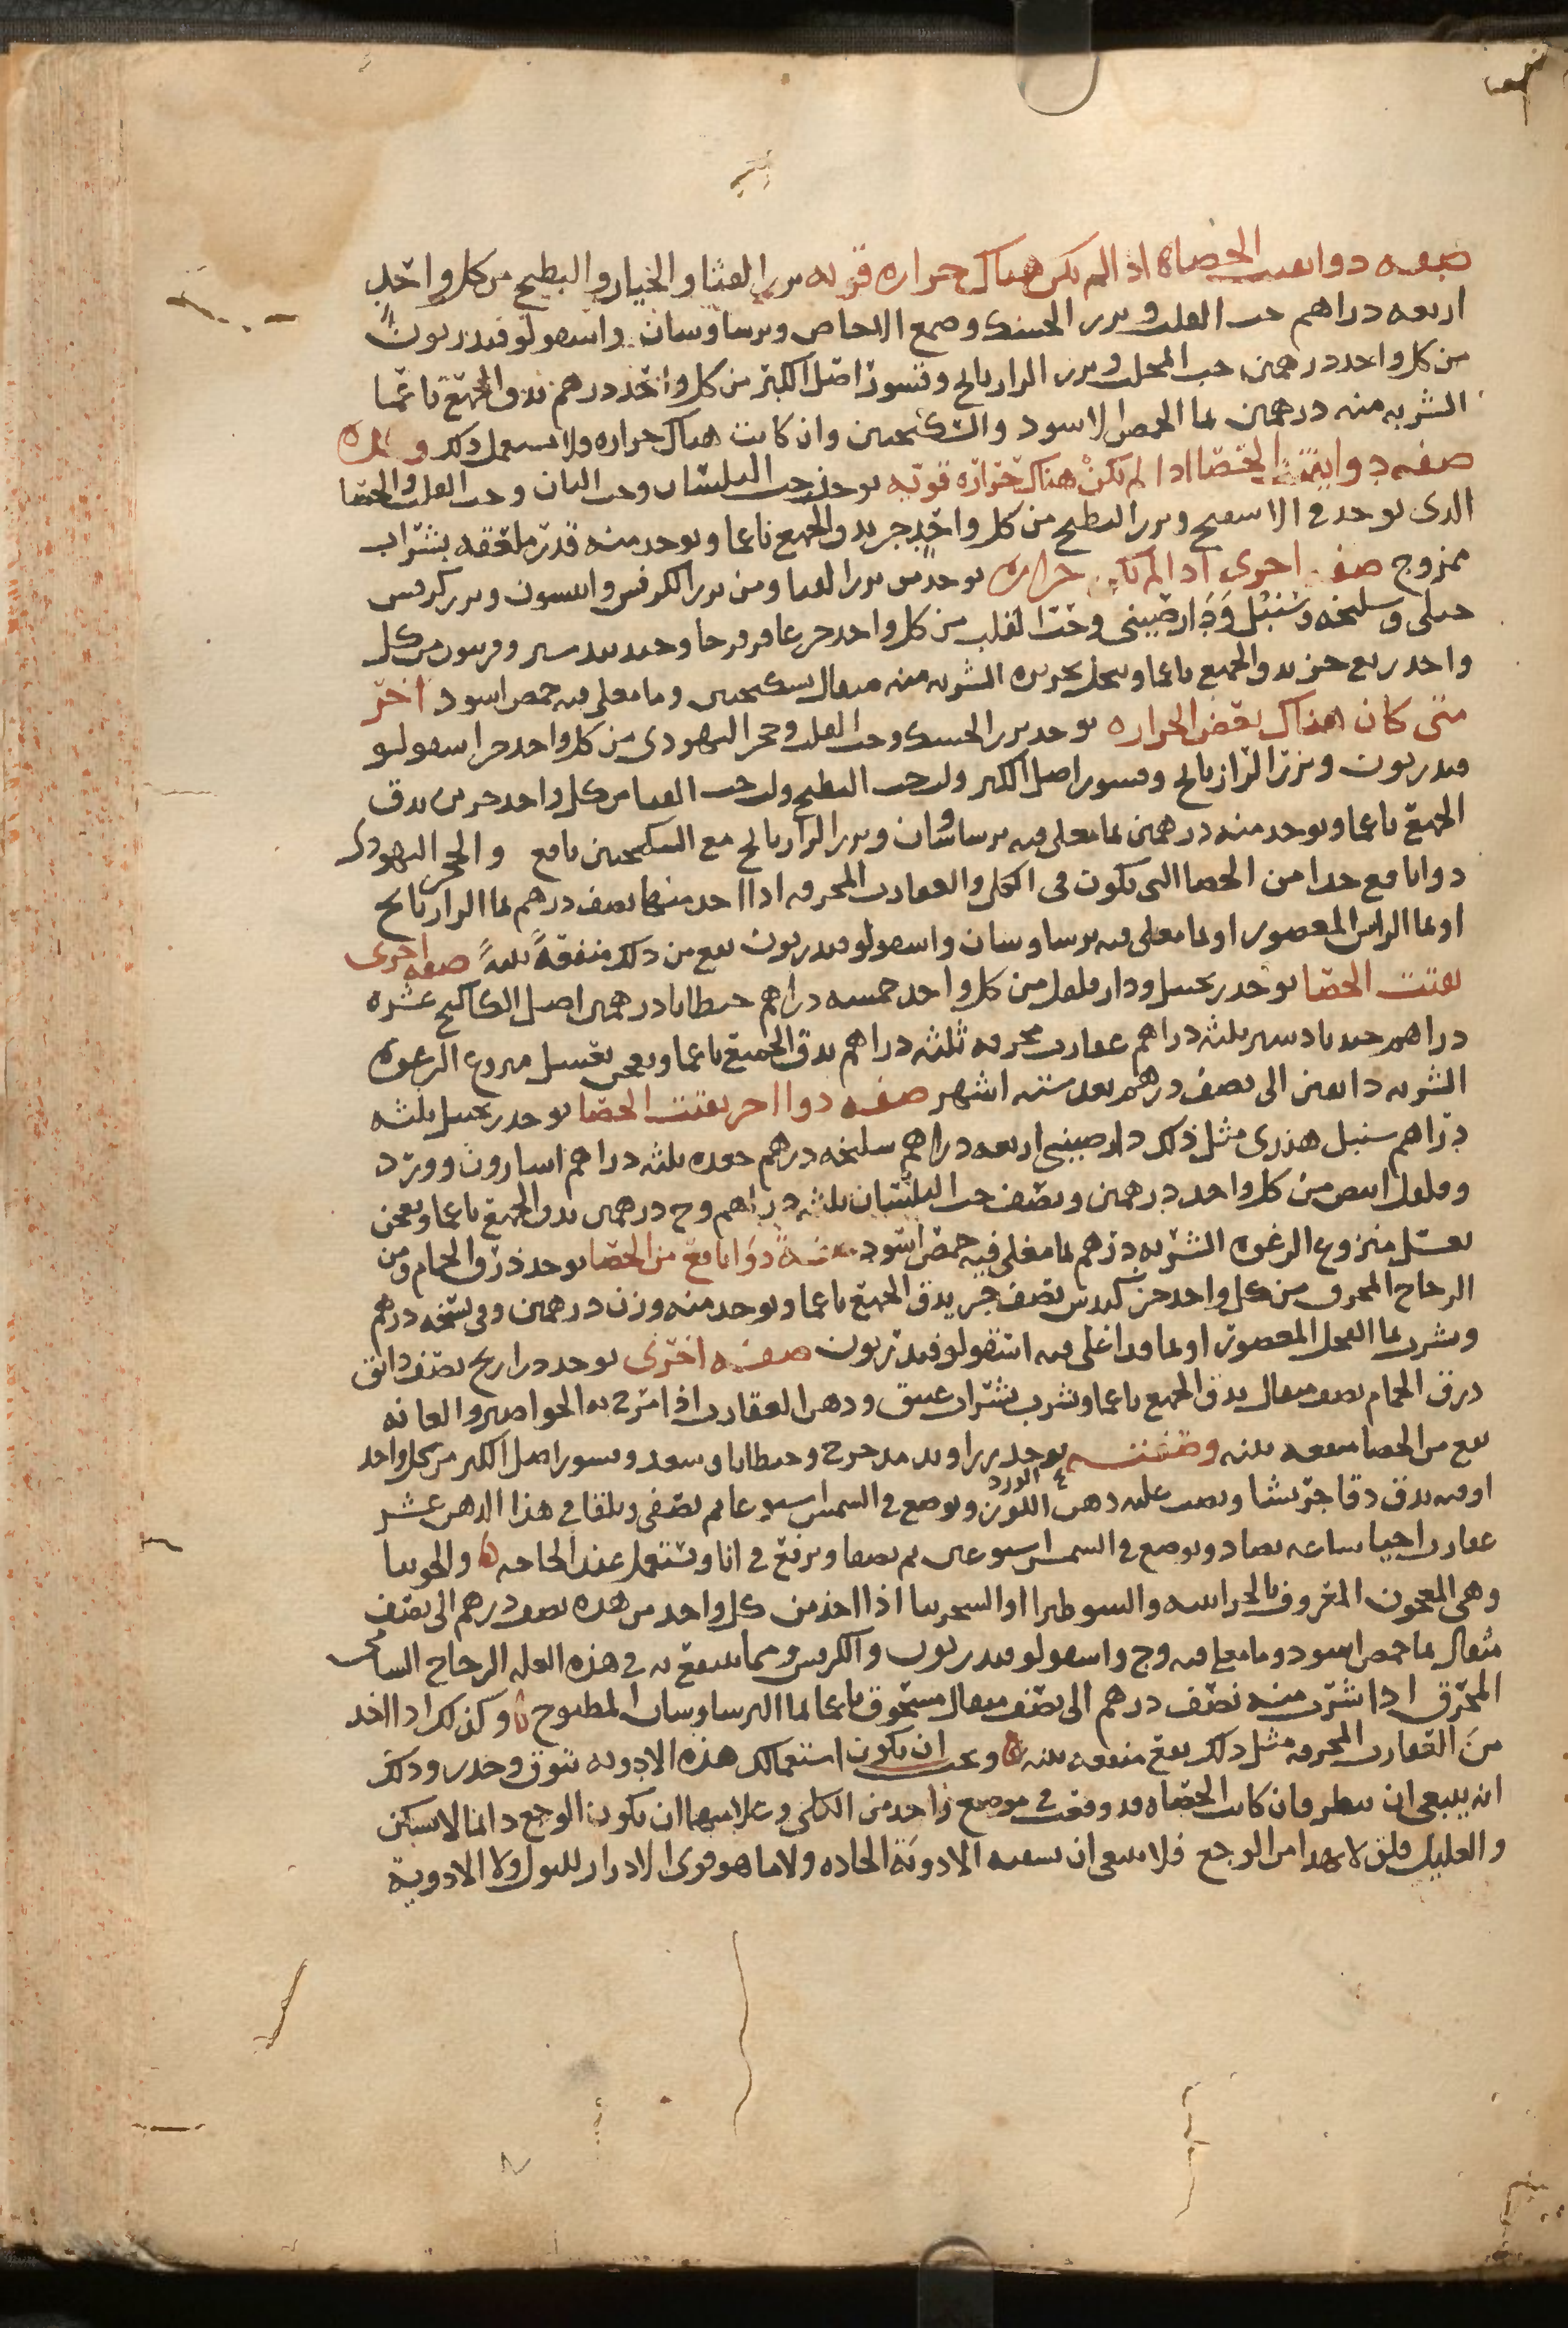 صفه دوا يفتت الحصاه اذا لم يكن هناك حراره قويه بزر القثا والخيار والبطيخ من كل واحد
اربعه دراهم حب القلت وبزر الحسك وصمغ الاجاص وبرسياوسان واسقولوقندريون
من كل واحد درهمين حب المحلب وبزر الرازيانج وقشور اصل الكبر من كل واحد درهم يدق الجميع ناعما
الشربه منه درهمين بما الحمص الاسود والسكنجبين وان كانت هناك حراره فلا يستعمل ذلك
صفه دوا يفتت الحصا اذا لم تكن هناك حراره قويه يوخذ حب البلسان وحب البان وحب القلت والحصا
الذى يوجد فى الاسفنج وبزر البطيخ من كل واحد جز يدق الجميع ناعما ويوخذ منه قدر ملعقه بشراب
ممزوج صفه اخرى اذا لم تكن حراره يوخذ من بزر القثا ومن بزر الكرفس وانيسون وبزر كرفس
جبلى وسليخه وسنبل ودارصينى وحب القلب من كل واحد جز عاقرقرحا وجندبيدستر وفربيون من كل
واحد ربع جز يدق الجميع ناعما وينخل بحريره الشربه منه مثقال بسكنجبين وما مغلى فيه حمص اسود اخر
متى كان هناك بعض الحراره يوخذ بزر الحسك وحب القلت وحجر اليهودى من كل واحد جز اسقولو
قندريون وبزر الرازيانج وقشور اصل الكبر ولب حب البطيخ ولب حب القثا من كل واحد جزين يدق
الجميع ناعما ويوخذ منه درهمين بما مغلى فيه برسياوشان وبزر الرازيانج مع السكنجبين نافع والحجر اليهودى
دوا نافع جدا من الحصا التى تكون فى الكلى والعقارب المحرقه اذا اخذ منها نصف درهم بما الرازيانج
او بما الراس المعصور او بما مغلى فيه برسياوسان واسقولوقندريون نفع من ذلك منفعةً بينةً صفه اخرى
يفتت الحصا يوخذ زنجبيل ودارفلفل من كل واحد خمسه دراهم جنطيانا درهمين اصل الكاكنج عشره
دراهم جندبادستر ثلثه دراهم عقارب محرقه ثلثه دراهم يدق الجميع ناعما ويعجن بعسل منزوع الرغوه
الشربه دانقين الى نصف درهم بعد سته اشهر صفه دوا اخر يفتت الحصا يوخذ زنجبيل ثلثه
دراهم سنبل هندى مثل ذلك دارصينى اربعه دراهم سليخه درهم جعده ثلثه دراهم اسارون وورد
وفلفل ابيض من كل واحد درهمين ونصف حب البلسان ثلثه دراهم وج درهمين يدق الجميع ناعما ويعجن
بعسل منزوع الرغوه الشربه درهم بما مغلى فيه حمص اسود صفةُ دوا نافع من الحصا يوخذ ذرق الحمام ومن
الزجاج المحرق من كل واحد جز كندس نصف جز يدق الجميع ناعما ويوخذ منه وزن درهمين وفى نسخه درهم
ويشرب بما الفجل المعصور او بما قد اغلى فيه اسقولوقندريون صفه اخرى يوخذ دراريح نصف دانق
ذرق الحمام نصف مثقال يدق الجميع ناعما ويشرب بشراب عتيق ودهن العقارب اذا مرخ به الخواصر والعانه
نفع من الحصا منفعه بينه وصفته يوخذ زراوند مدحرج وجنطيانا وسعد وقشور اصل الكبر من كل واحد
اوقيه يدق دقا جريشا ويصب عليه دهن اللوز
الورد
ويوضع فى الشمس اسبوعا ثم يصفى ويلقا فى هذا الدهن عشر
عقارب احيا ساعه تصاد ويوضع فى الشمس اسبوعين ثم يصفا ويرفع فى انا ويستعمل عند الحاجه ه والحويا
وهى المعجون المعروف بالحراسه والسوطيرا او السجرنيا اذا اخذ من كل واحد من هذه نصف درهم الى نصف
مثقال بما حمص اسود وما مغلى فيه وج واسقولوقندريون والكرفس ومما ينتفع به فى هذه العله الزجاج الشامى
المحرق اذا شرب منه نصف درهم الى نصف مثقال مسحوق ناعما بما البرسياوسان المطبوخ ه وكذلك اذا اخذ
من العقارب المحرقه مثل ذلك نفع منفعه بينه ه ويجب ان يكون استعمالك هذه الادويه بتوق وحذر وذلك
انه ينبغى ان تنظر فان كانت الحصاه قد وقفت فى موضع واحد من الكلى وعلامتها ان يكون الوجع دائما لا يسكن
والعليل قلق لا يهدا من الوجع فلا ينبغى ان تسقيه الادويه الحاده ولا ما هو قوى الادرار للبول ولا الادوية